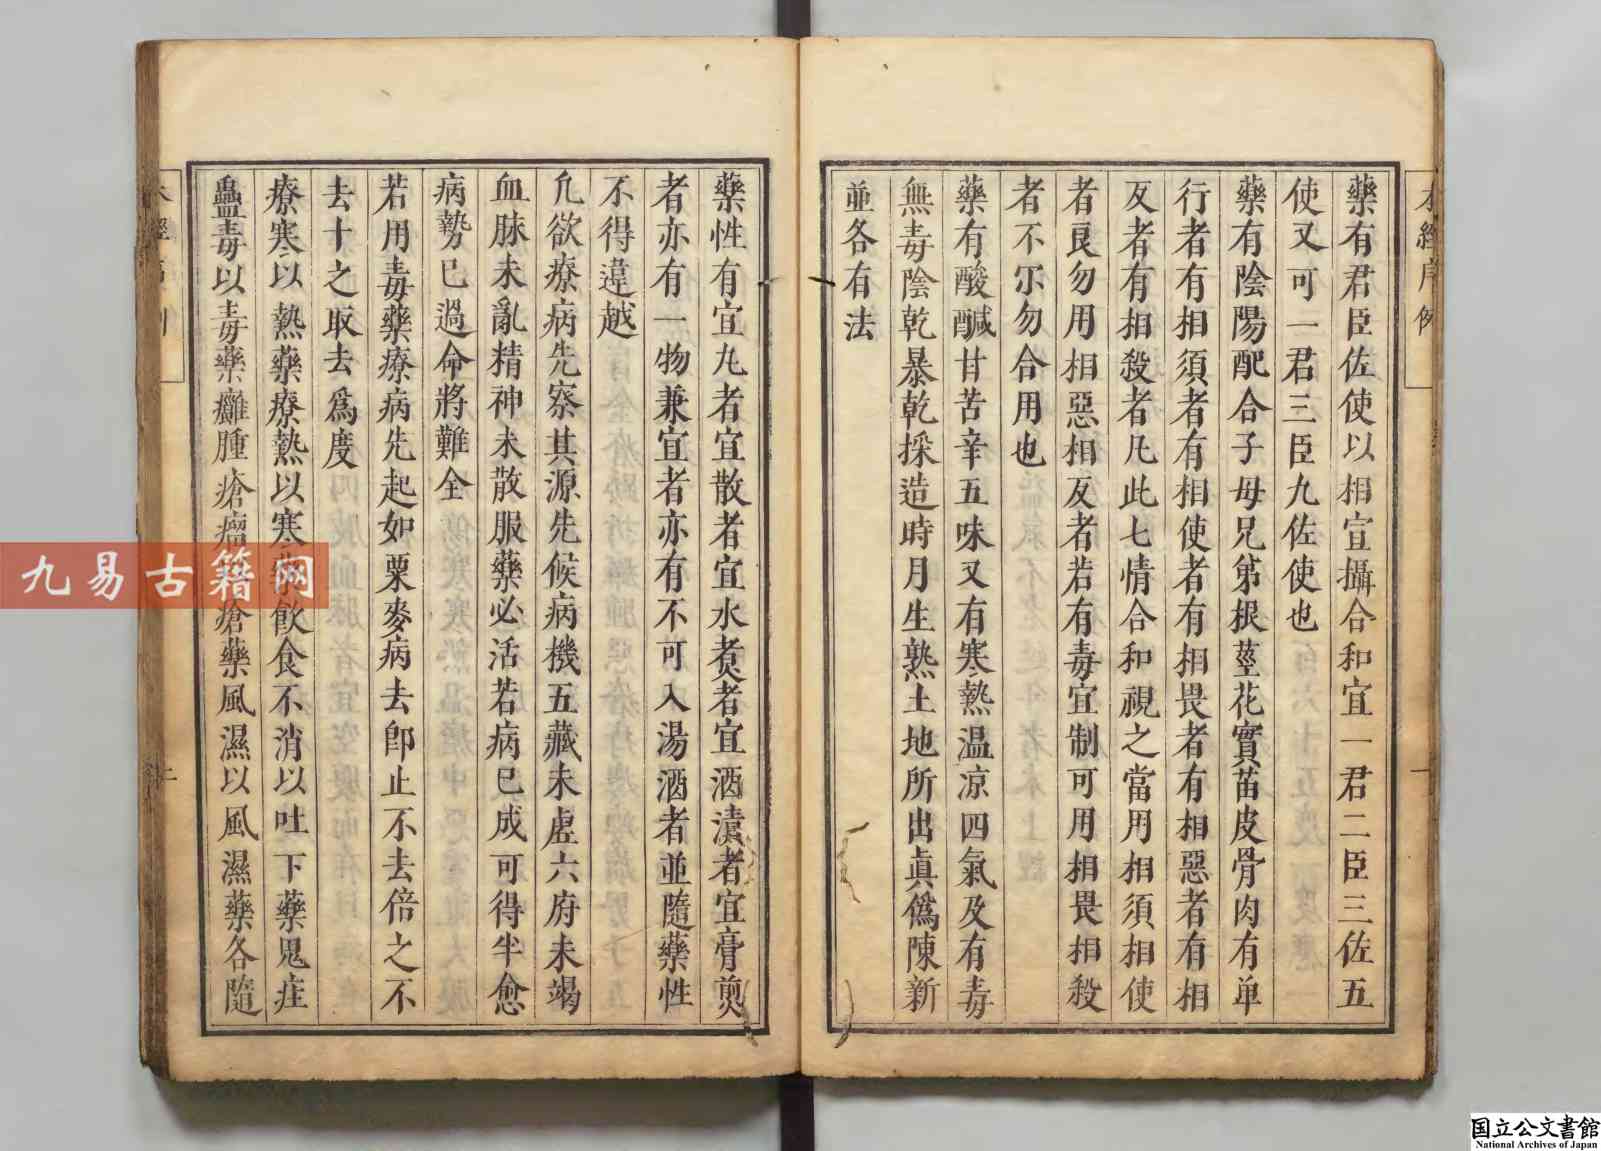 藥有君臣佐使以相宣攝合和宜一君二臣三佐五
使又可一君三臣九佐使也
藥有陰陽配合子母兄弟根莖花實苗皮骨肉有单
行者有相須者有相使者有相畏者有相惡者有相
反者有相殺者凡此七情合和視之當用相須相使
者良勿用相惡相反者若有毒宜制可用相畏相殺
者不尓勿合用也
藥有酸鹹甘苦辛五味又有寒熱温凉四氣及有毒
無毒陰乾暴乾採造時月生熟土地所出眞僞陳新
並各有法
藥性有宜丸者宜散者宜水煑者宜酒漬者宜膏煎
者亦有一物兼宜者亦有不可入湯酒者並隨藥性
不得違越
凡欲療病先察其源先候病機五藏未虛六府未竭
血脉未亂精神未散服藥必活若病已成可得半愈
病勢已過命將難全
若用毒藥療病先起如粟麥病去卽止不去倍之不
去十之取去爲度
療寒以熱藥療熱以寒藥飲食不消以吐下藥鬼疰
蠱毒以毒藥癰腫瘡瘤以瘡藥風濕以風濕藥各隨
本經序例
一
二
九易古籍网
国立公文書館
National Archives of Japan